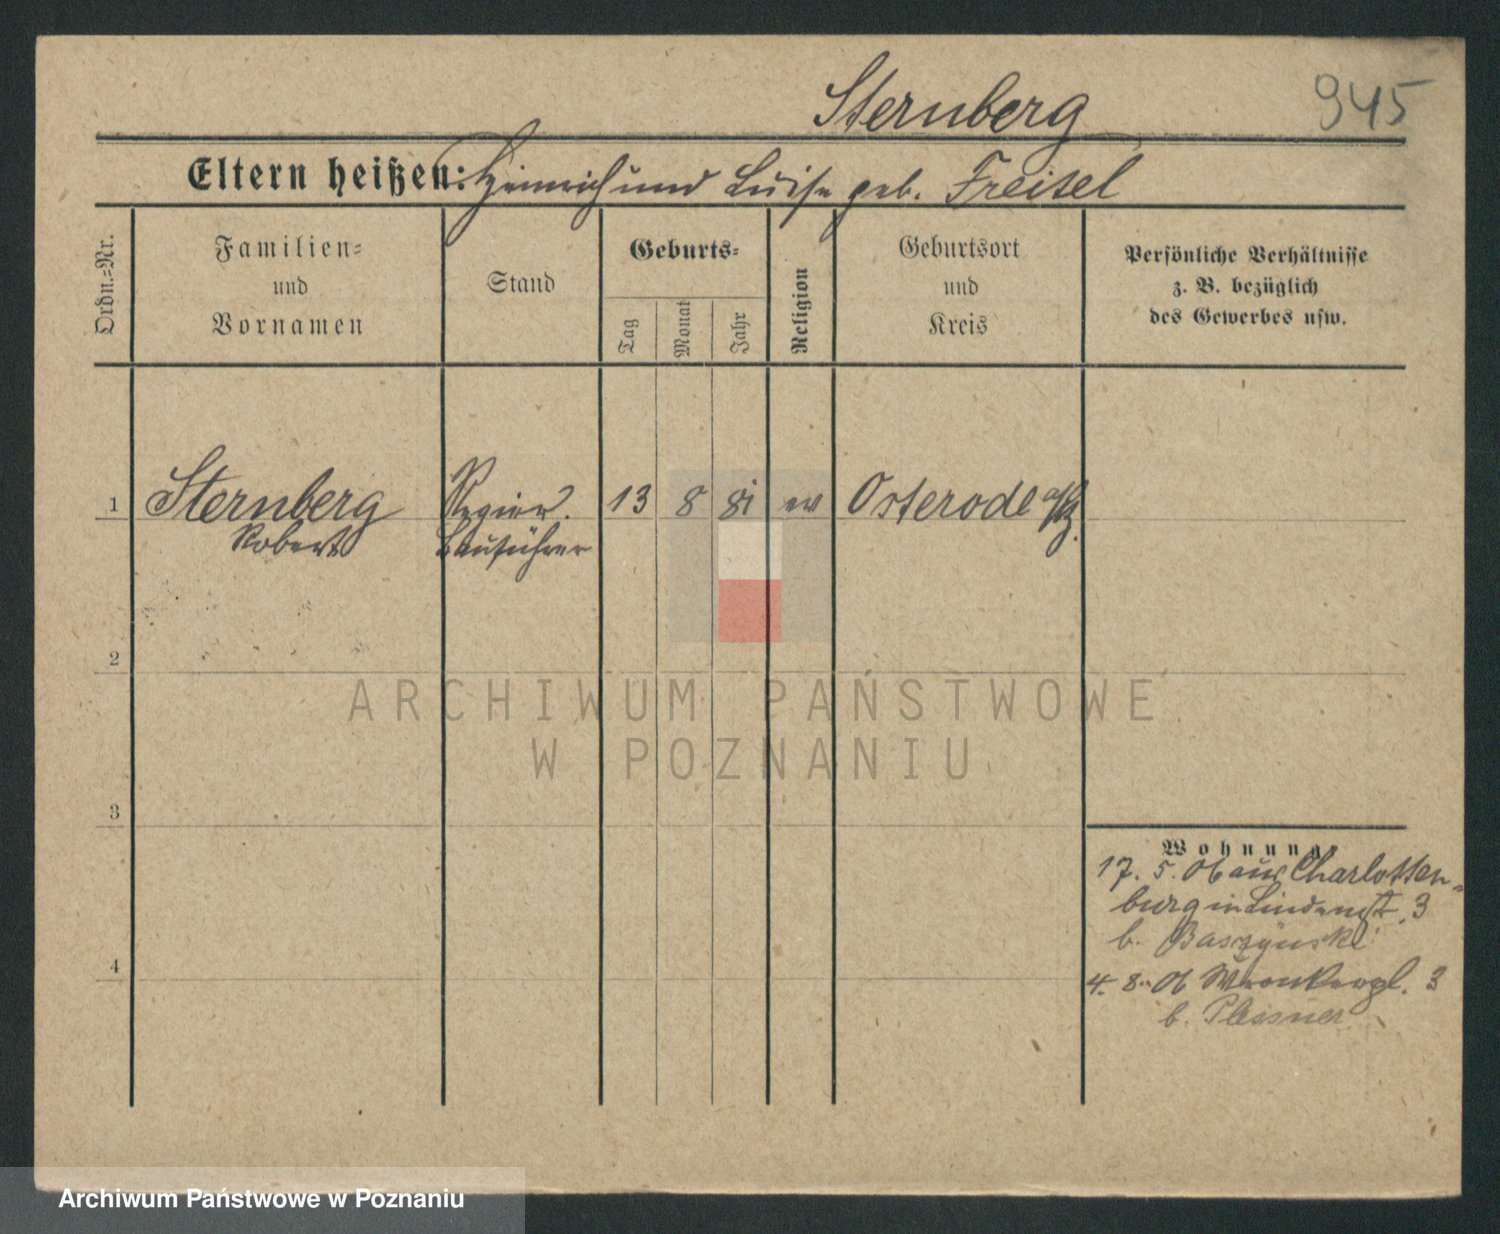 Sternberg 945
Eltern heißen: Heinrich und Luise geb. Freisel
Ordn.=Nr.
Familien=
und
Vornamen
Stand
Geburts=
Tag
Monat
Jahr
Religion
Geburtsort
und
Kreis
Persönliche Verhältnisse
z. B. bezüglich
des Gewerbes usw.
1 Sternberg Regier. 13 8 81 ev Osterode a/H.
Robert Bauführer
2
3
4
Wohnung
17. 5. 06 aus Charlotten-
burg in Lindenstr. 3
b. Baszynski
4. 8. 06 Wronkerpl. 3
b. Plessner
ARCHIWUM PAŃSTWOWE
W POZNANIU
Archiwum Państwowe w Poznaniu